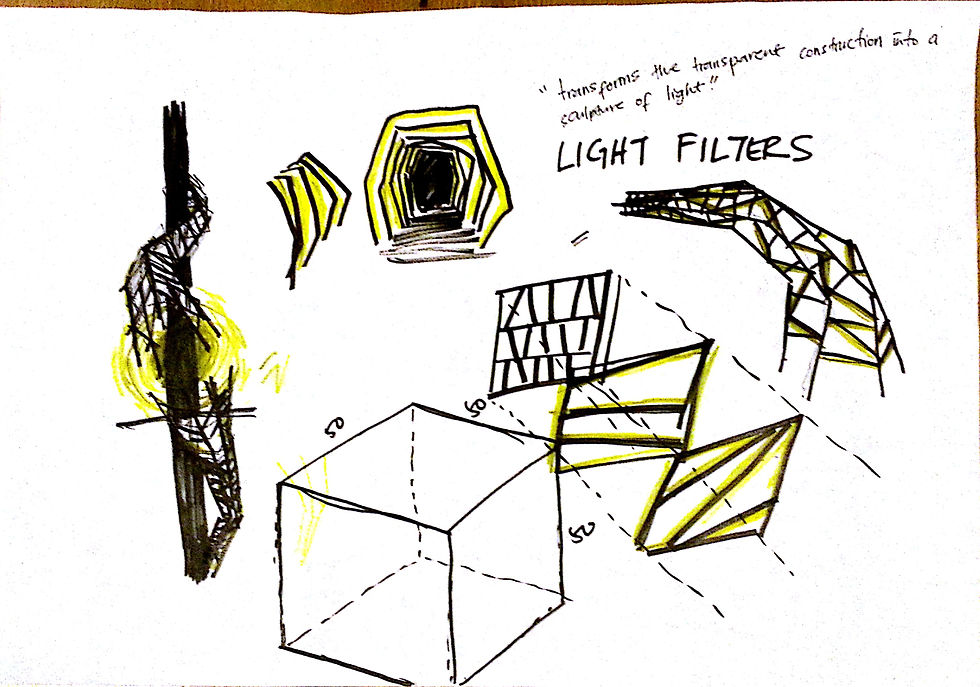 "transforms the transparent construction into a
sculpture of light"
LIGHT FILTERS
50
50
50